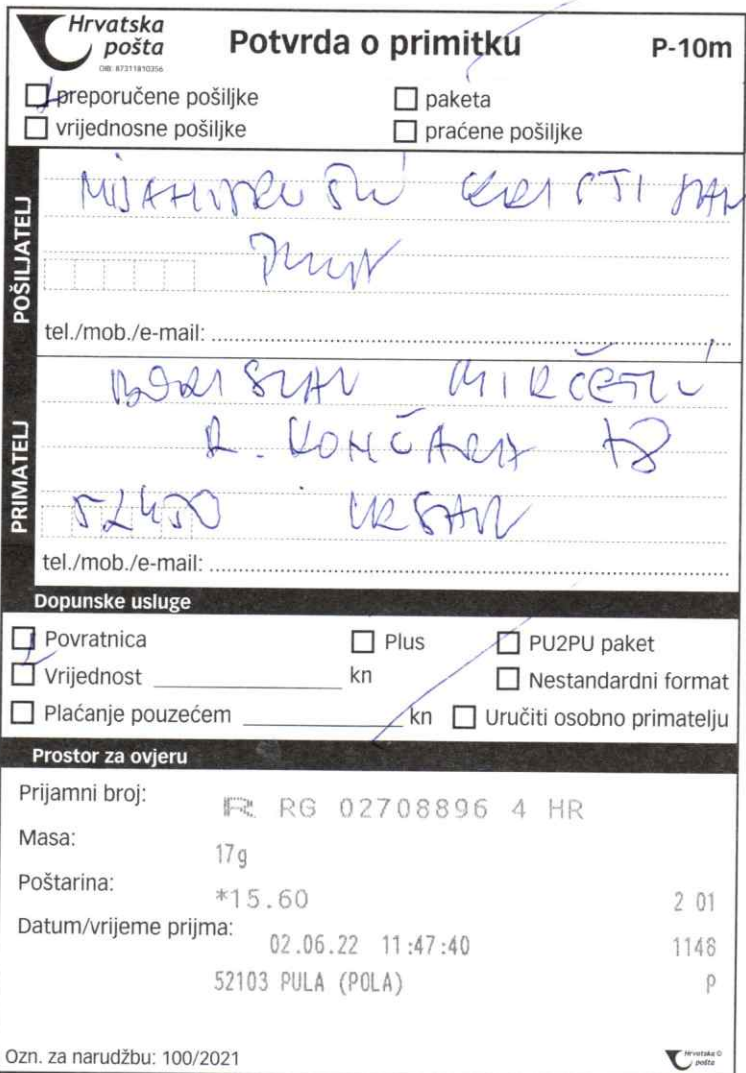 Hrvatska pošta
OIB: 87311810356
Potvrda o primitku
P-10m
preporučene pošiljke
paketa
vrijednosne pošiljke
praćene pošiljke
POŠILJATELJ
tel./mob./e-mail:
PRIMATELJ
BORISLAV MIRČETIĆ
R. KONČARA
52450 VRSAR
tel./mob./e-mail:
Dopunske usluge
Povratnica
Plus
PU2PU paket
Vrijednost kn
Nestandardni format
Plaćanje pouzećem kn
Uručiti osobno primatelju
Prostor za ovjeru
Prijamni broj: R RG 02708896 4 HR
Masa: 17g
Poštarina: *15.60 2 01
Datum/vrijeme prijma: 02.06.22 11:47:40 1148
52103 PULA (POLA) P
Ozn. za narudžbu: 100/2021
Hrvatska pošta